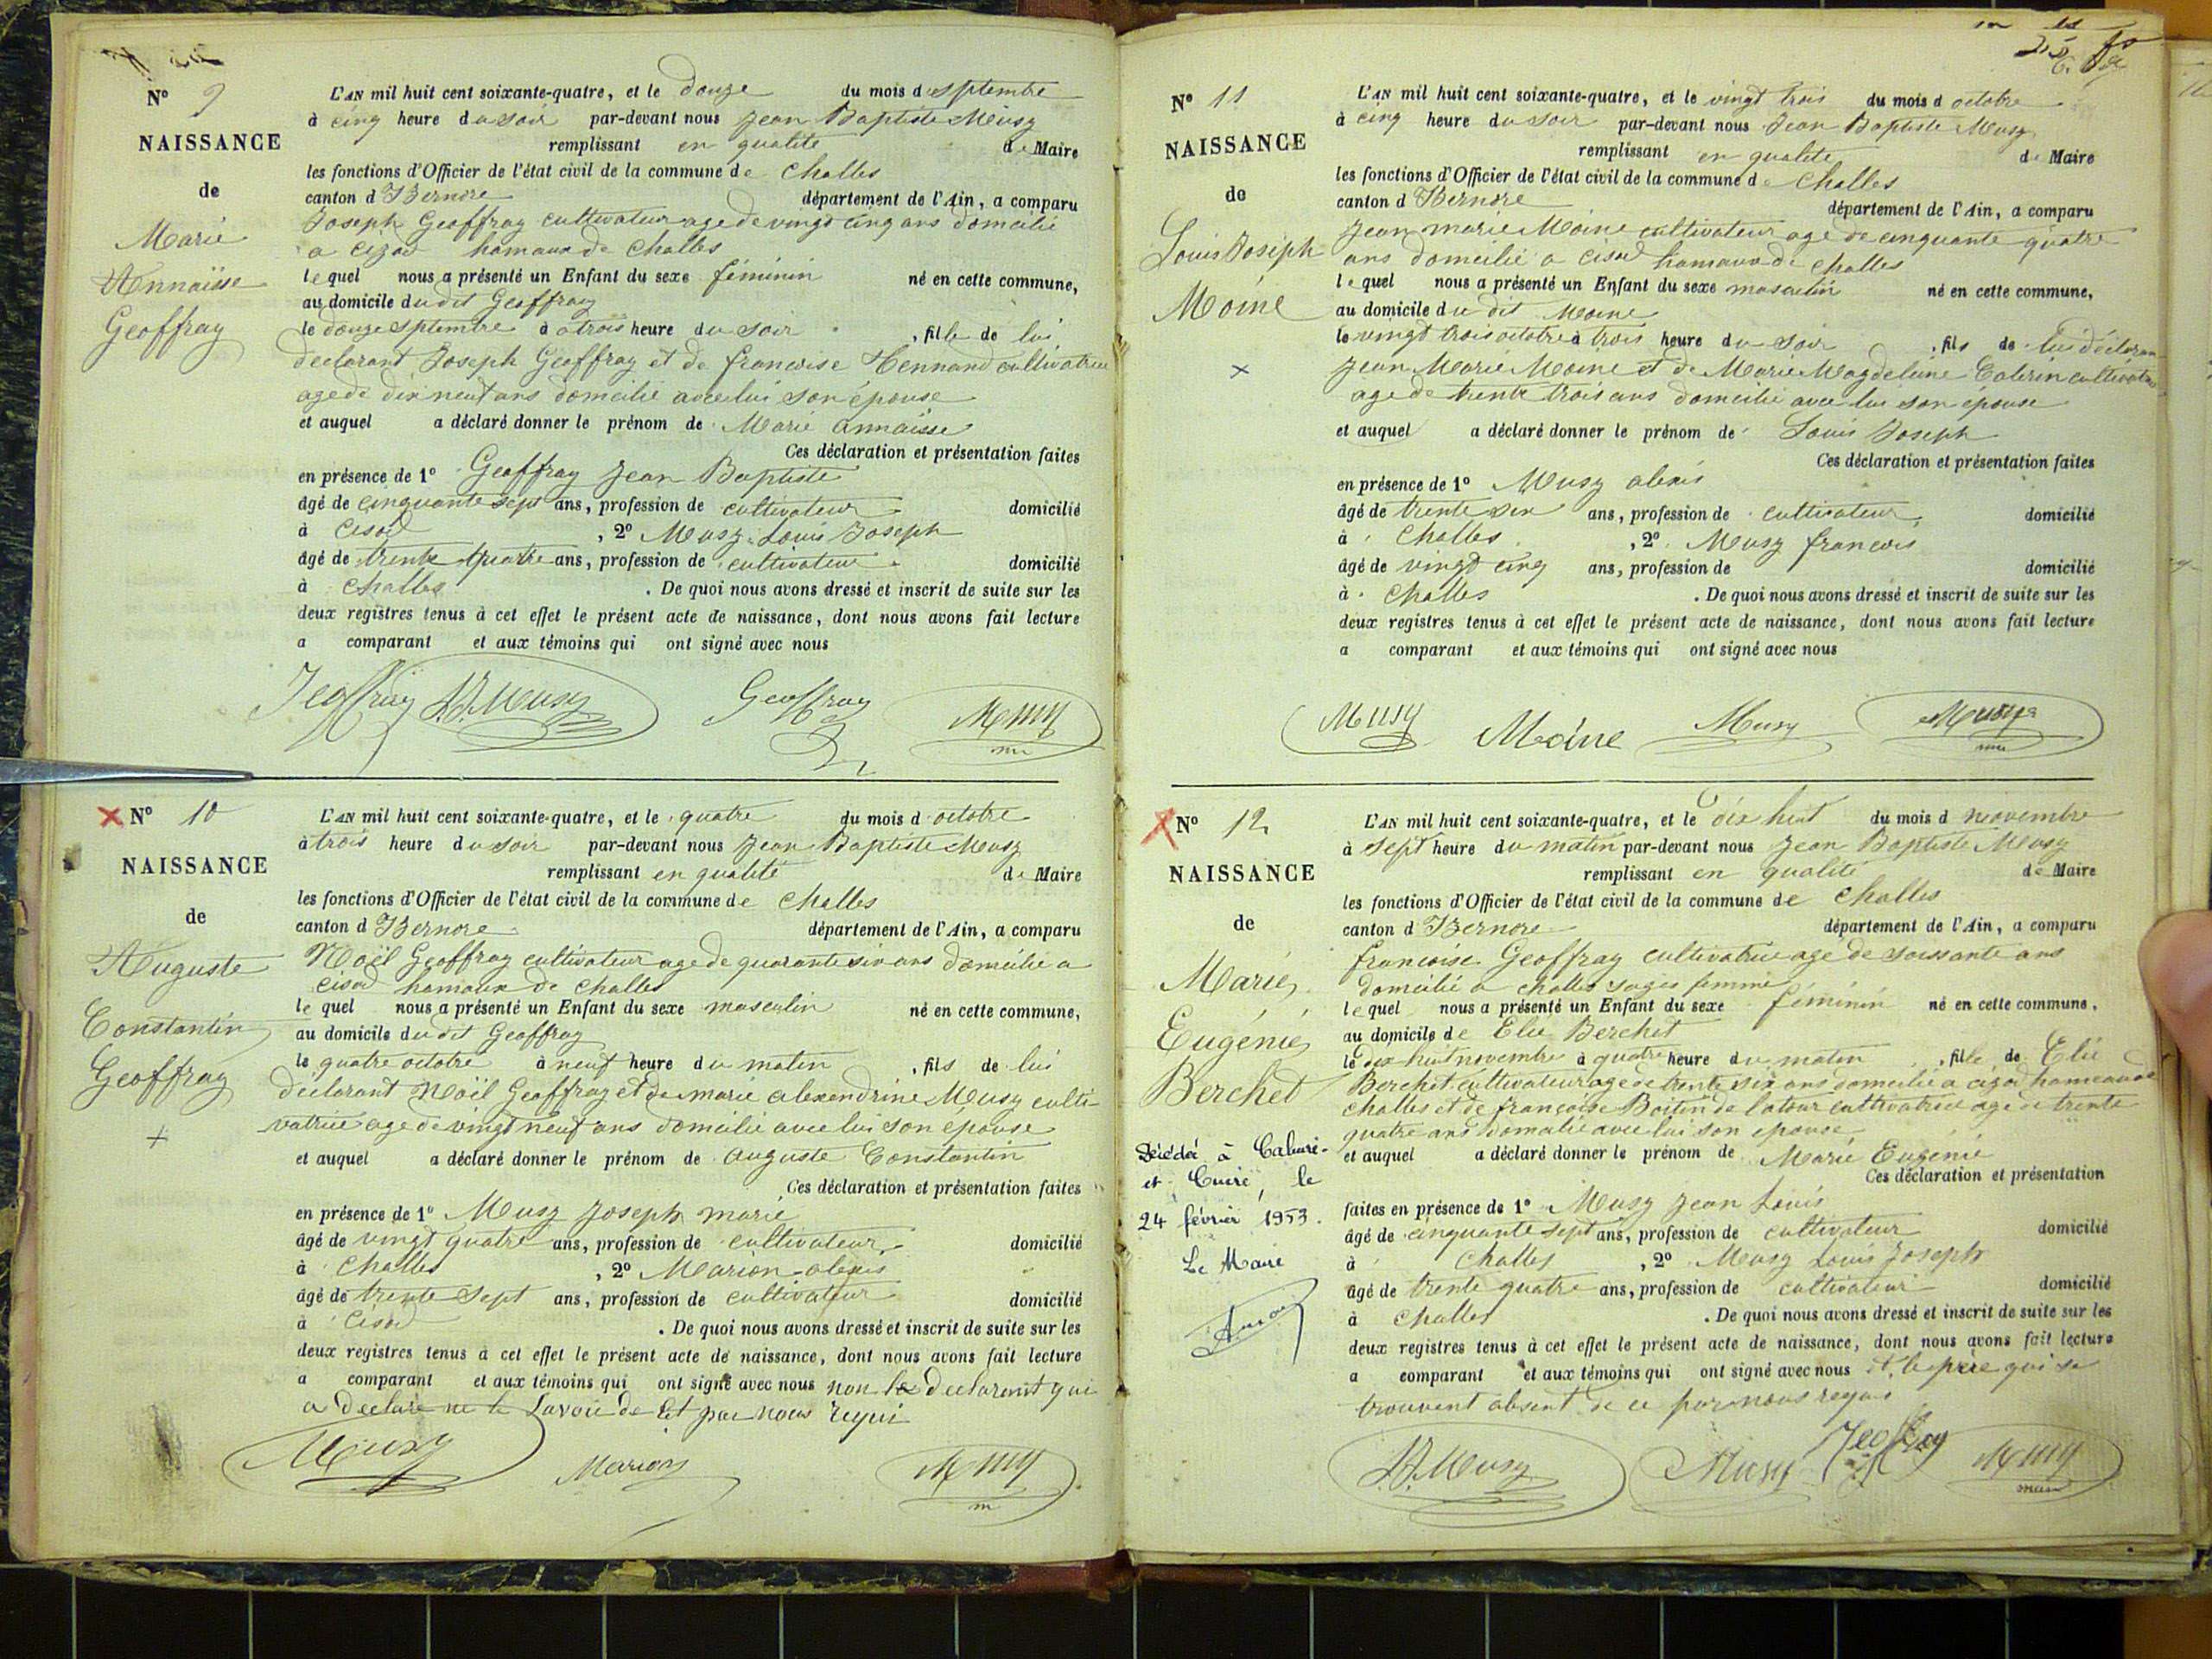 N° 9
NAISSANCE
de
Marie
Annaïsse
Geoffray
L'AN mil huit cent soixante-quatre, et le douze du mois de septembre
à cinq heure du soir par-devant nous Jean Baptiste Musy
remplissant en qualité de Maire
les fonctions d'Officier de l'état civil de la commune de Challes
canton d Izernore département de l'Ain, a comparu
Joseph Geoffray cultivateur age de vingt cinq ans domicilié
a cizod hamaux de Challes
lequel nous a présenté un Enfant du sexe féminin né en cette commune,
au domicile du dit Geoffray
le douze septembre à trois heure du soir , fille de lui
déclarant Joseph Geoffray et de francoise cultivatrice
age de dix neuf ans domicilié avec lui son épouse
et auquel a déclaré donner le prénom de Marie annaïsse
Ces déclaration et présentation faites
en présence de 1° Geoffray Jean Baptiste
âgé de cinquante sept ans, profession de cultivateur domicilié
à Cisod , 2° Musy Louis Joseph
âgé de trente quatre ans, profession de cultivateur domicilié
à Challes . De quoi nous avons dressé et inscrit de suite sur les
deux registres tenus à cet effet le présent acte de naissance, dont nous avons fait lecture
a comparant et aux témoins qui ont signé avec nous
Jeoffray J.L Musy Geoffray Musy
N° 10
NAISSANCE
de
Auguste
Constantin
Geoffray
L'AN mil huit cent soixante-quatre, et le quatre du mois d octobre
à trois heure du soir par-devant nous Jean Baptiste Musy
remplissant en qualité de Maire
les fonctions d'Officier de l'état civil de la commune de Challes
canton d Izernore département de l'Ain, a comparu
Noël Geoffray cultivateur age de quarante six ans domicilié a
cisod hamaux de Challes
lequel nous a présenté un Enfant du sexe masculin né en cette commune,
au domicile du dit Geoffray
le quatre octobre à neuf heure du matin , fils de lui
déclarant Noël Geoffray et de marie alexandrine Musy culti-
vatrice age de vingt neuf ans domicilié avec lui son épouse
et auquel a déclaré donner le prénom de auguste Constantin
Ces déclaration et présentation faites
en présence de 1° Musy Joseph marie
âgé de vingt quatre ans, profession de cultivateur domicilié
à Challes , 2° Marion alexis
âgé de trente sept ans, profession de cultivateur domicilié
à Cisod . De quoi nous avons dressé et inscrit de suite sur les
deux registres tenus à cet effet le présent acte de naissance, dont nous avons fait lecture
a comparant et aux témoins qui ont signé avec nous non le declarant qui
a declaré ne le Savoir de Cet par nous requi
Musy Marion Musy
N° 11
NAISSANCE
de
Louis Joseph
Moine
L'AN mil huit cent soixante-quatre, et le vingt trois du mois d octobre
à cinq heure du soir par-devant nous Jean Baptiste Musy
remplissant en qualité de Maire
les fonctions d'Officier de l'état civil de la commune de Challes
canton d Izernore département de l'Ain, a comparu
Jean marie Moine cultivateur age de cinquante quatre
ans domicilié a cisod hamaux de challes
lequel nous a présenté un Enfant du sexe masculin né en cette commune,
au domicile du dit Moine
le vingt trois octobre à trois heure du soir , fils de lui déclarant
Jean Marie Moine et de Marie Magdeleine cultivatrice
age de trente trois ans domicilié avec lui son épouse
et auquel a déclaré donner le prénom de Louis Joseph
Ces déclaration et présentation faites
en présence de 1° Musy alexis
âgé de trente six ans, profession de cultivateur domicilié
à Challes , 2° Musy francois
âgé de vingt cinq ans, profession de domicilié
à Challes . De quoi nous avons dressé et inscrit de suite sur les
deux registres tenus à cet effet le présent acte de naissance, dont nous avons fait lecture
a comparant et aux témoins qui ont signé avec nous
Musy Moine Musy Musy
N° 12
NAISSANCE
de
Marie
Eugénie
Berchet
Décédée à Caluire-
et Cuire, le
24 février 1953.
Le Maire
L'AN mil huit cent soixante-quatre, et le dix huit du mois d novembre
à sept heure du matin par-devant nous Jean Baptiste Musy
remplissant en qualité de Maire
les fonctions d'Officier de l'état civil de la commune de Challes
canton d Izernore département de l'Ain, a comparu
francoise Geoffray cultivatrice agé de soissante ans
domicilié a challes sages femme
lequel nous a présenté un Enfant du sexe féminin né en cette commune.
au domicile de Elie Berchet
le dix huit novembre à quatre heure du matin , fille de Elie
Berchet cultivateur age de trente six ans domicilié a cizod hameau de
challes et de françoise Boiton de latour cultivatrice age de trente
quatre ans domicilié avec lui son epouse
et auquel a déclaré donner le prénom de Marie Eugénie
Ces déclaration et présentation
faites en présence de 1° Musy Jean Louis
âgé de cinquante sept ans, profession de cultivateur domicilié
à Challes , 2° Musy Louis Joseph
âgé de trente quatre ans, profession de cultivateur domicilié
à Challes . De quoi nous avons dressé et inscrit de suite sur les
deux registres tenus à cet effet le présent acte de naissance, dont nous avons fait lecture
a comparant et aux témoins qui ont signé avec nous et le père qui se
trouvent absent de ce par nous requis
J.L Musy Musy Jeoffray Musy
maire